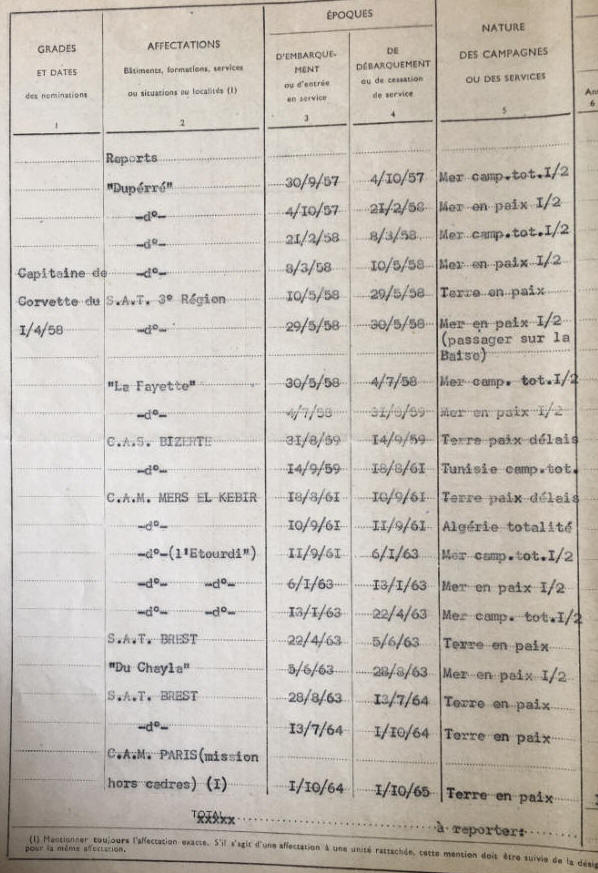 ÉPOQUES
GRADES
ET DATES
des nominations
1
AFFECTATIONS
Bâtiments, formations, services
ou situations ou localités (1)
2
D'EMBARQUE-
MENT
ou d'entrée
en service
3
DE
DÉBARQUEMENT
ou de cessation
de service
4
NATURE
DES CAMPAGNES
OU DES SERVICES
5
6
Reports
"Dupérré" 30/9/57 4/10/57 Mer camp.tot.I/2
-d°- 4/10/57 2I/2/58 Mer en paix I/2
-d°- 2I/2/58 8/3/58 Mer camp.tot.I/2
Capitaine de -d°- 8/3/58 I0/5/58 Mer en paix I/2
Corvette du S.A.T. 3° Région I0/5/58 29/5/58 Terre en paix
I/4/58 -d°- 29/5/58 30/5/58 Mer en paix I/2
(passager sur la
Baise)
"La Fayette" 30/5/58 4/7/58 Mer camp. tot.I/2
-d°- 4/7/58 3I/8/59 Mer en paix I/2
C.A.S. BIZERTE 3I/8/59 I4/9/59 Terre paix délais
-d°- I4/9/59 I8/8/6I Tunisie camp.tot.
C.A.M. MERS EL KEBIR I8/8/6I I0/9/6I Terre paix délais
-d°- I0/9/6I II/9/6I Algérie totalité
-d°-(l'Etourdi") II/9/6I 6/I/63 Mer camp.tot.I/2
-d°- -d°- 6/I/63 I3/I/63 Mer en paix I/2
-d°- -d°- I3/I/63 22/4/63 Mer camp. tot.I/2
S.A.T. BREST 22/4/63 5/6/63 Terre en paix
"Du Chayla" 5/6/63 28/8/63 Mer en paix I/2
S.A.T. BREST 28/8/63 I3/7/64 Terre en paix
-d°- I3/7/64 I/I0/64 Terre en paix
C.A.M. PARIS(mission
hors cadres) (I) I/I0/64 I/I0/65 Terre en paix
TOTAL
xxxxx à reporter:
(1) Mentionner toujours l'affectation exacte. S'il s'agit d'une affectation à une unité rattachée, cette mention doit être suivie de la
pour la même affectation.